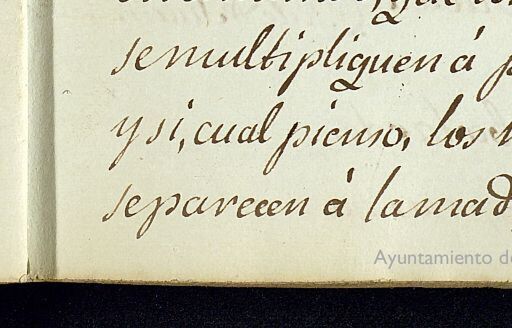 se multipliquen á
y si, cual pienso, los
se parecen á la mad
Ayuntamiento d